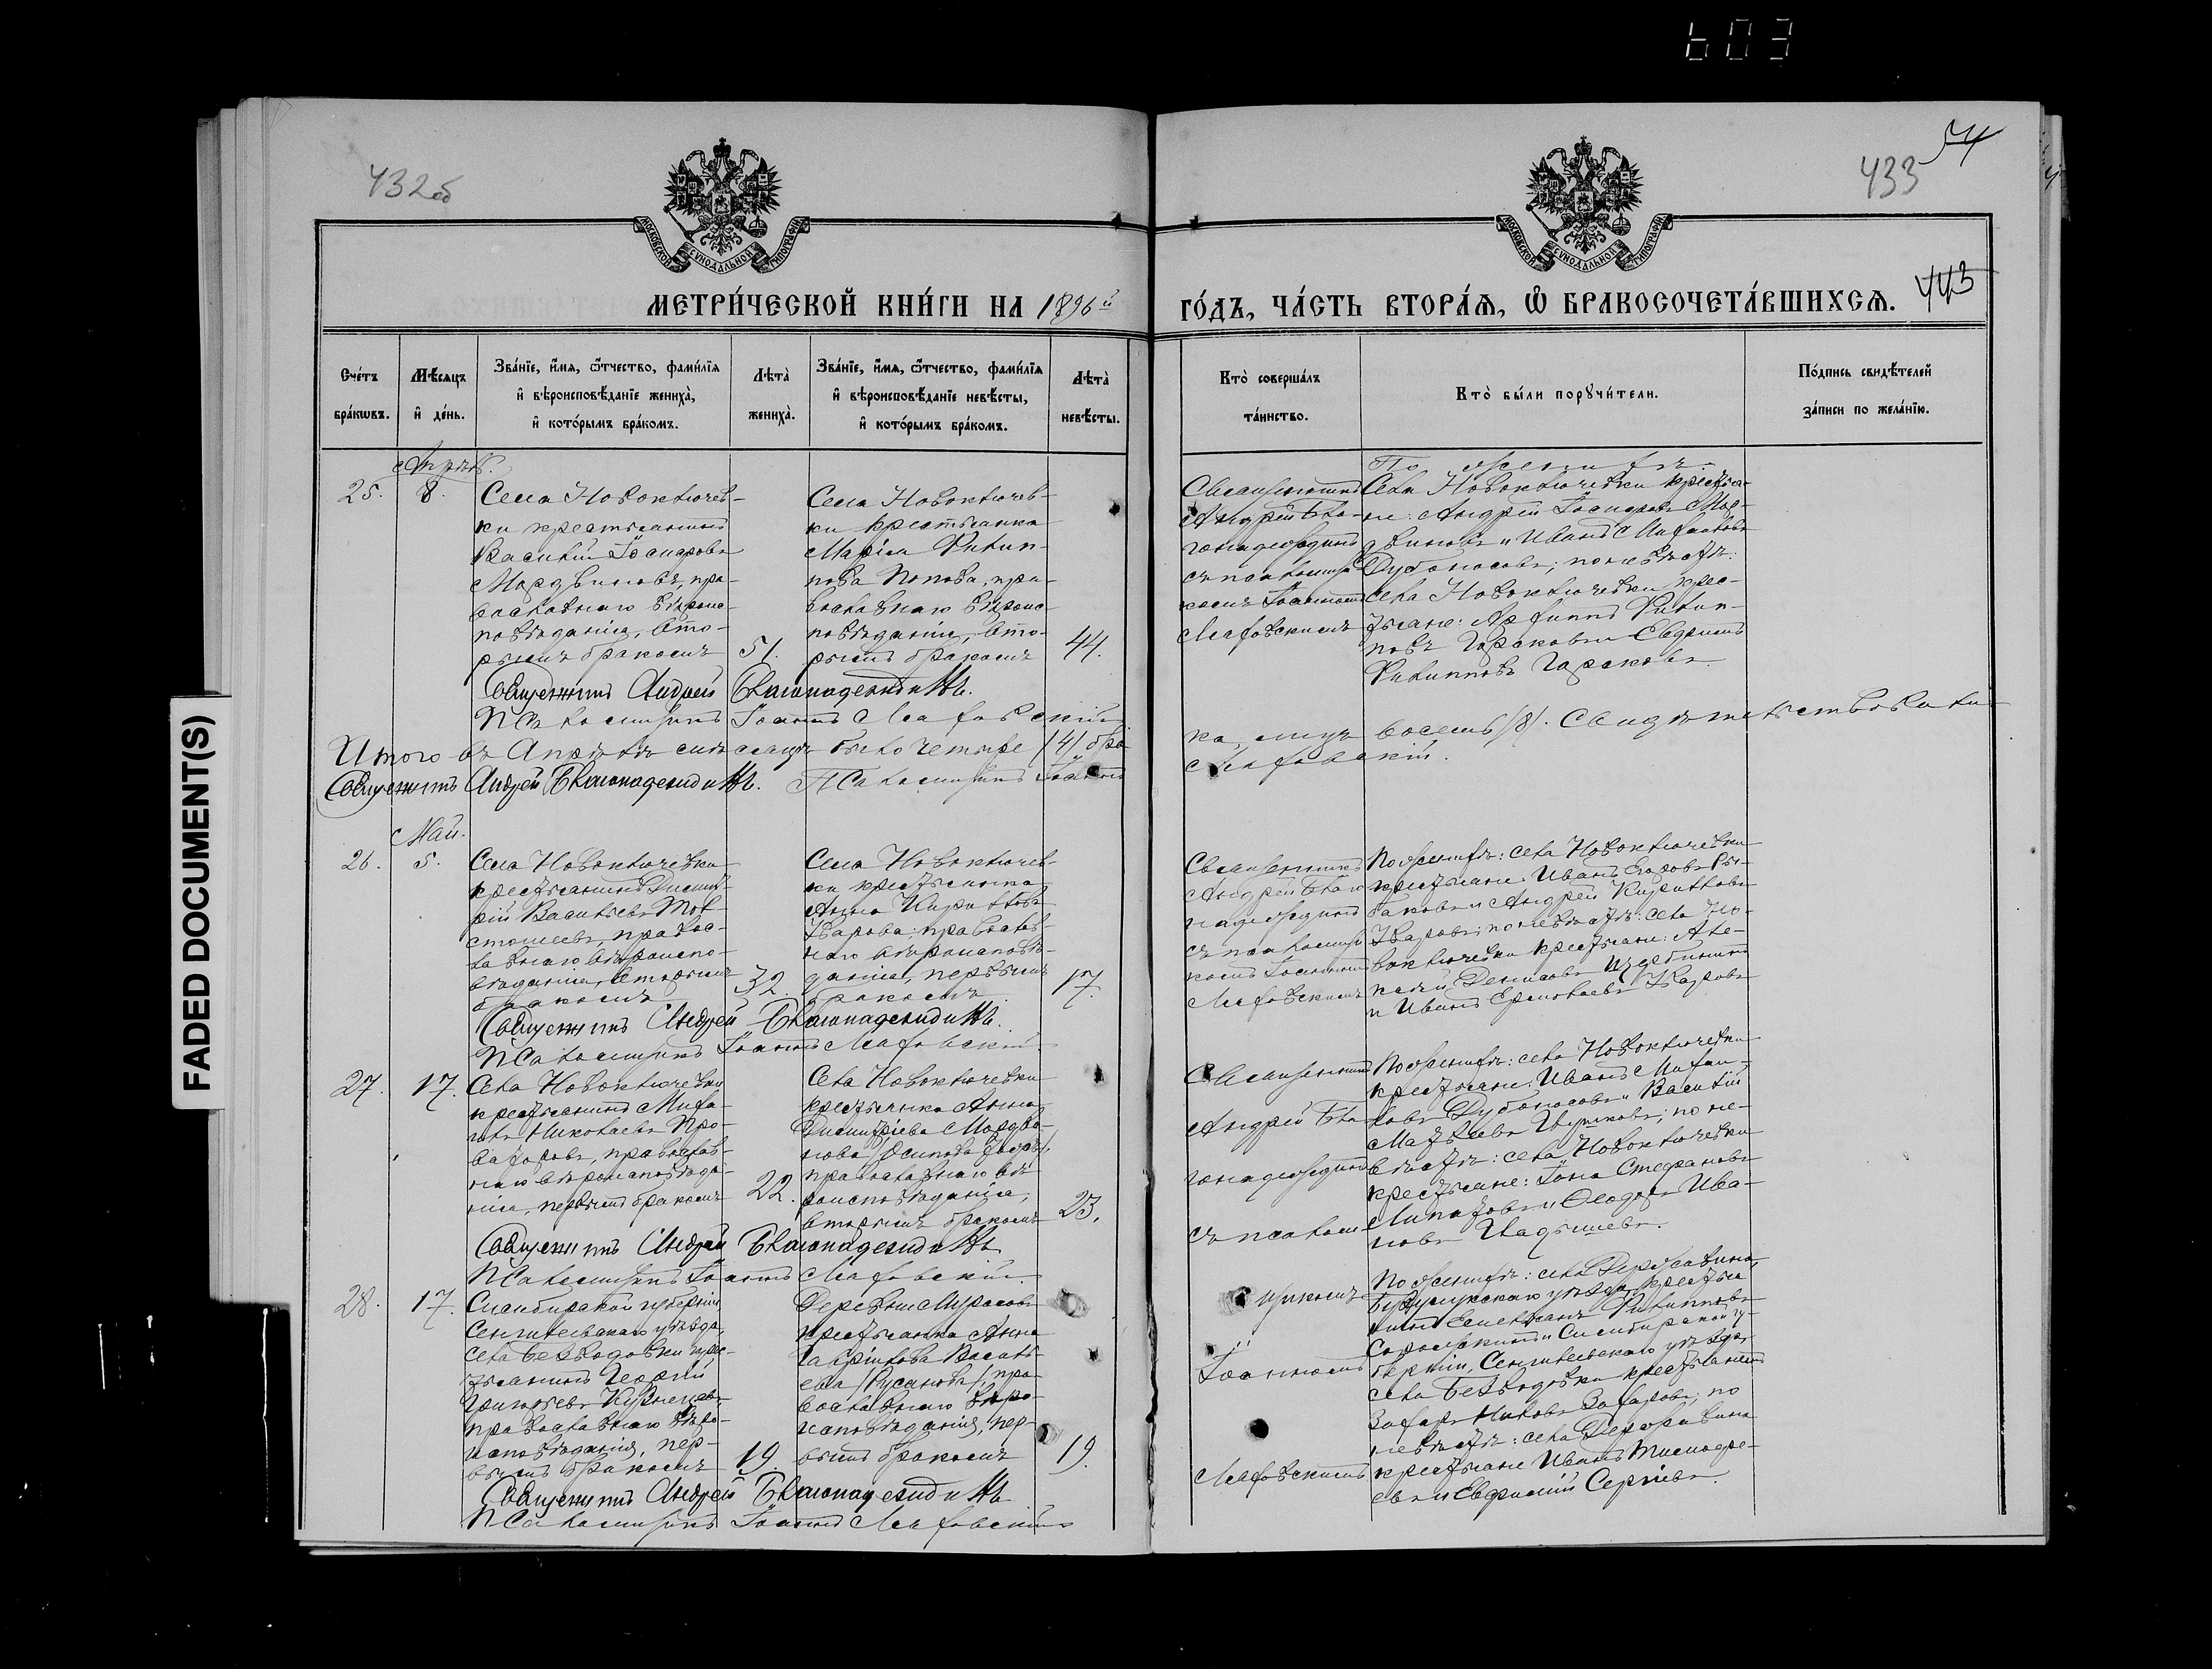 603
432об
433
54
443
МОСКОВСКОЙ СѴНОДАЛЬНОЙ ТИПОГРАФІИ
МОСКОВСКОЙ СѴНОДАЛЬНОЙ ТИПОГРАФІИ
МЕТРИ́ЧЕСКОЙ КНИ́ГИ НА 1896й
ГО́ДЪ, ЧА́СТЬ ВТОРА́Я, Ѽ БРАКОСОЧЕТА́ВШИХСЯ.
Сче́тъ бра́кѡвъ.
Мѣ́сяцъ и҆ де́нь.
Зва́нїе, и҆́мя, ѻ҆́тчество, фами́лїя и҆ вѣроисповѣ́данїе жениха̀, и҆ кото́рымъ бра́комъ.
Лѣта̀ жениха̀.
Зва́нїе, и҆́мя, ѻ҆́тчество, фами́лїя и҆ вѣроисповѣ́данїе невѣ́сты, и҆ кото́рымъ бра́комъ.
Лѣта̀ невѣ́сты.
Кто̀ соверша́лъ та́инство.
Кто̀ бы́ли порꙋчи́тели.
По́дпись свидѣ́телей за́писи по жела́нїю.
Апрѣль.
25.
8.
Села Новоключев-
ки крестьянинъ
Василій Іосифовъ
Мордвиновъ, пра-
вославнаго вѣроис-
повѣданія, вто-
рымъ бракомъ
51.
Села Новоключев-
ки крестьянка
Марія Филип-
пова Попова, пра-
вославнаго вѣроис-
повѣданія, вто-
рымъ бракомъ
44.
Священникъ
Андрей Бла-
гонадеждинъ
съ псаломщи-
комъ Іоанномъ
По женихѣ:
Села Новоключевки крестья-
не: Андрей Іосифовъ Мор-
двиновъ и Иванъ Михайловъ
Дубоносовъ; по невѣстѣ:
села Новоключевки крес-
тьяне: Филип-
повъ и
Филипповъ
Священникъ Андрей Благонадеждинъ.
Псаломщикъ Іоаннъ
Итого въ Апрѣлѣ мѣсяцѣ было четыре /4/ бра-
ка, лицъ восемь /8/. Свидѣтельствовали
Священникъ Андрей Благонадеждинъ. Псаломщикъ Іоаннъ
Май.
26.
5.
Села Новоключевки
крестьянинъ Димит-
рій Васильевъ Тол-
стошеевъ, правос-
лавнаго вѣроиспо-
вѣданія, вторымъ
бракомъ
32.
Села Новоключев-
ки крестьянка
Анна Кириллова
Уварова, православ-
наго вѣроисповѣ-
данія, первымъ
бракомъ
17.
Священникъ
Андрей Благо-
надеждинъ
съ псаломщи-
комъ Іоанномъ
По женихѣ: села Новоключевки
крестьяне: Иванъ Егоровъ Ры-
баковъ и Андрей Кирилловъ
Уваровъ; по невѣстѣ: села Но-
воключевки крестьяне: Але-
и Иванъ Ермолаевъ Уваровъ
Священникъ Андрей Благонадеждинъ.
Псаломщикъ Іоаннъ
27.
17.
Села Новоключевки
крестьянинъ Миха-
илъ Николаевъ Про-
православ-
наго вѣроисповѣда-
нія, первымъ бракомъ
22.
Села Новоключевки
крестьянка Анна
Димитріева Мордви-
нова
православнаго вѣ-
роисповѣданія,
вторымъ бракомъ
23.
Священникъ
Андрей Бла-
гонадеждинъ
съ псалом-
По женихѣ: села Новоключевки
крестьяне: Иванъ Михай-
ловъ Дубоносовъ и Василій
Матвѣевъ по не-
вѣстѣ: села Новоключевки
крестьяне: Іона Стефановъ
и Ѳеодоръ Ива-
новъ
Священникъ Андрей Благонадеждинъ.
Псаломщикъ Іоаннъ
28.
17.
Симбирской губерніи,
Сенгилеевскаго уѣзда,
села Безводовки крес-
тьянинъ Георгій
Григорьевъ Кузнецовъ,
православнаго вѣро-
исповѣданія, пер-
вымъ бракомъ
19.
Деревни
крестьянка Анна
Гаврилова Василь-
ева /Русанова/, пра-
вославнаго вѣро-
исповѣданія, пер-
вымъ бракомъ
19.
щикомъ
Іоанномъ
По женихѣ: села Державина,
Бузулукскаго уѣзда, крестья-
нинъ Филипповъ
и Симбирской гу-
берніи, Сенгилеевскаго уѣзда
села Безводовки крестьянинъ
Захаръ Захаровъ; по
невѣстѣ: села Державина
крестьяне Иванъ Тимофе-
евъ и Евфимій Сергіевъ.
Священникъ Андрей Благонадеждинъ.
Псаломщикъ Іоаннъ
FADED DOCUMENT(S)